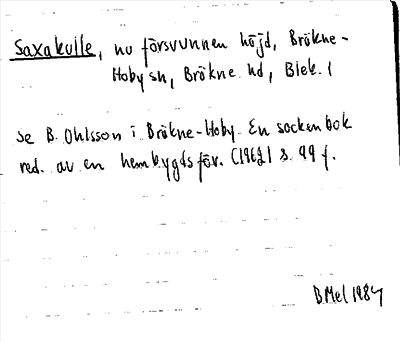 Saxakulle, nu försvunnen höjd, Bräkne-
Hoby sn, Bräkne hd, Blek. l
Se B. Ohlsson i Bräkne-Hoby. En sockenbok
red. av en hembygdsför. (1962) s. 99 f.
B Mel 1984